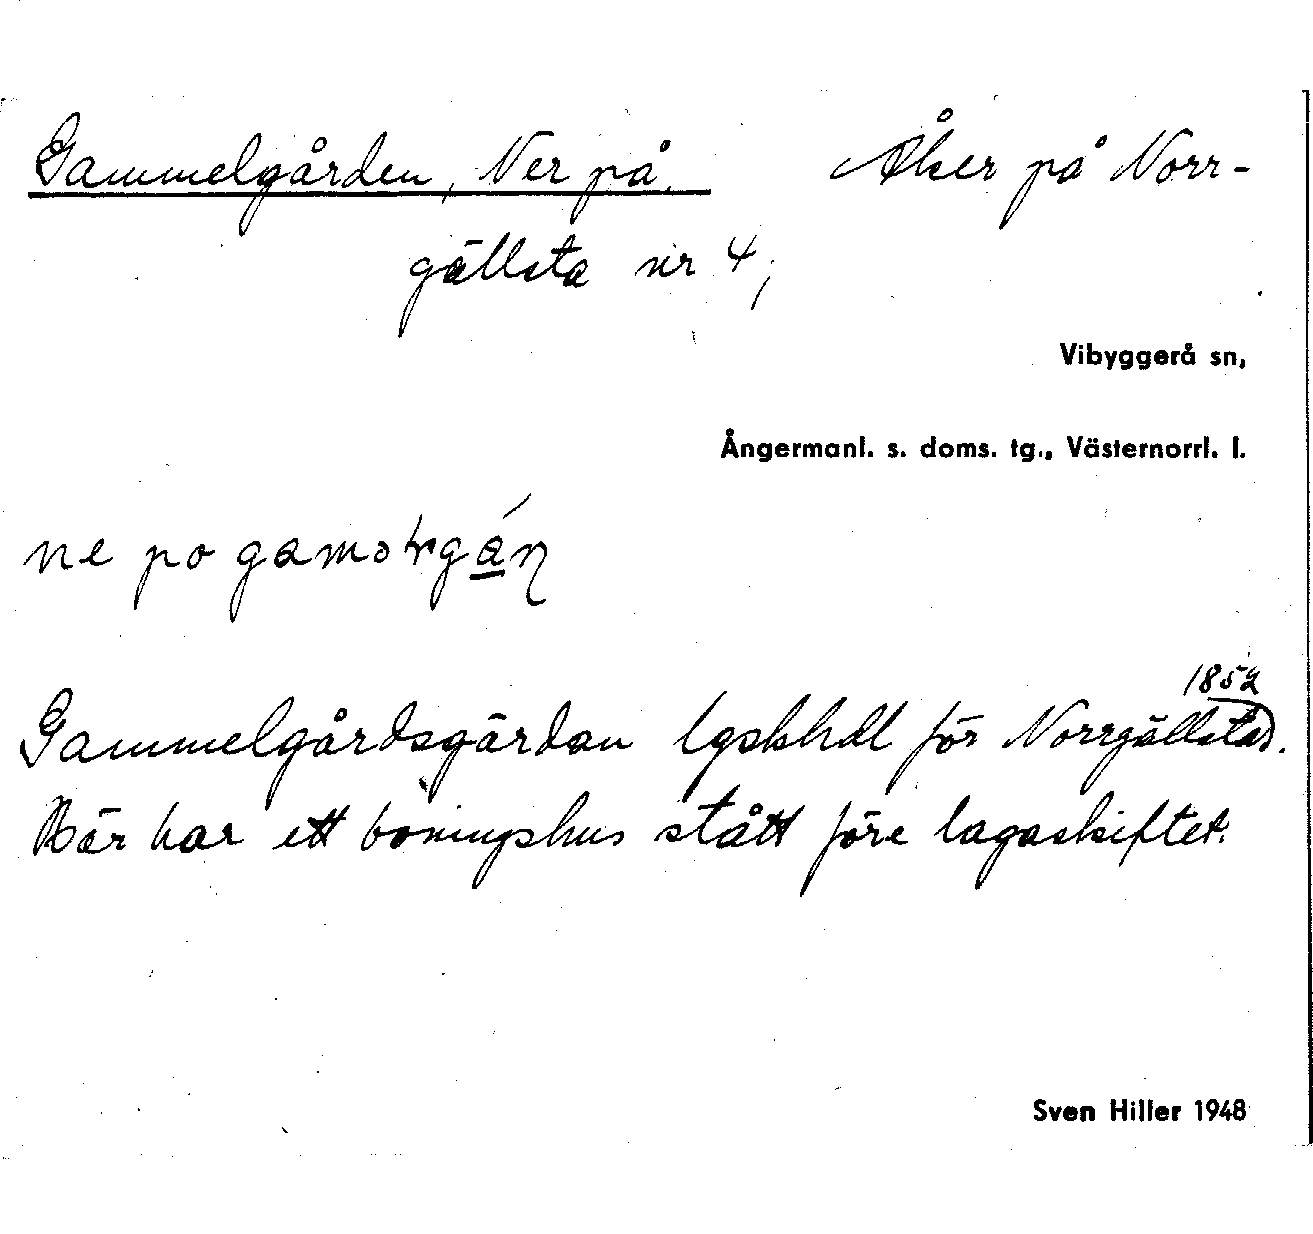 Gammelgården, Ner på. Åker på Norr-
gällsta nr 4,
Vibyggerå sn,
Ångermanl. s. doms. tg., Västernorrl. l.
ne po
1852
Gammelgårdsgärdan lgskhdl för Norrgällsta.
Här har ett boningshus stått före lagaskiftet.
Sven Hiller 1948